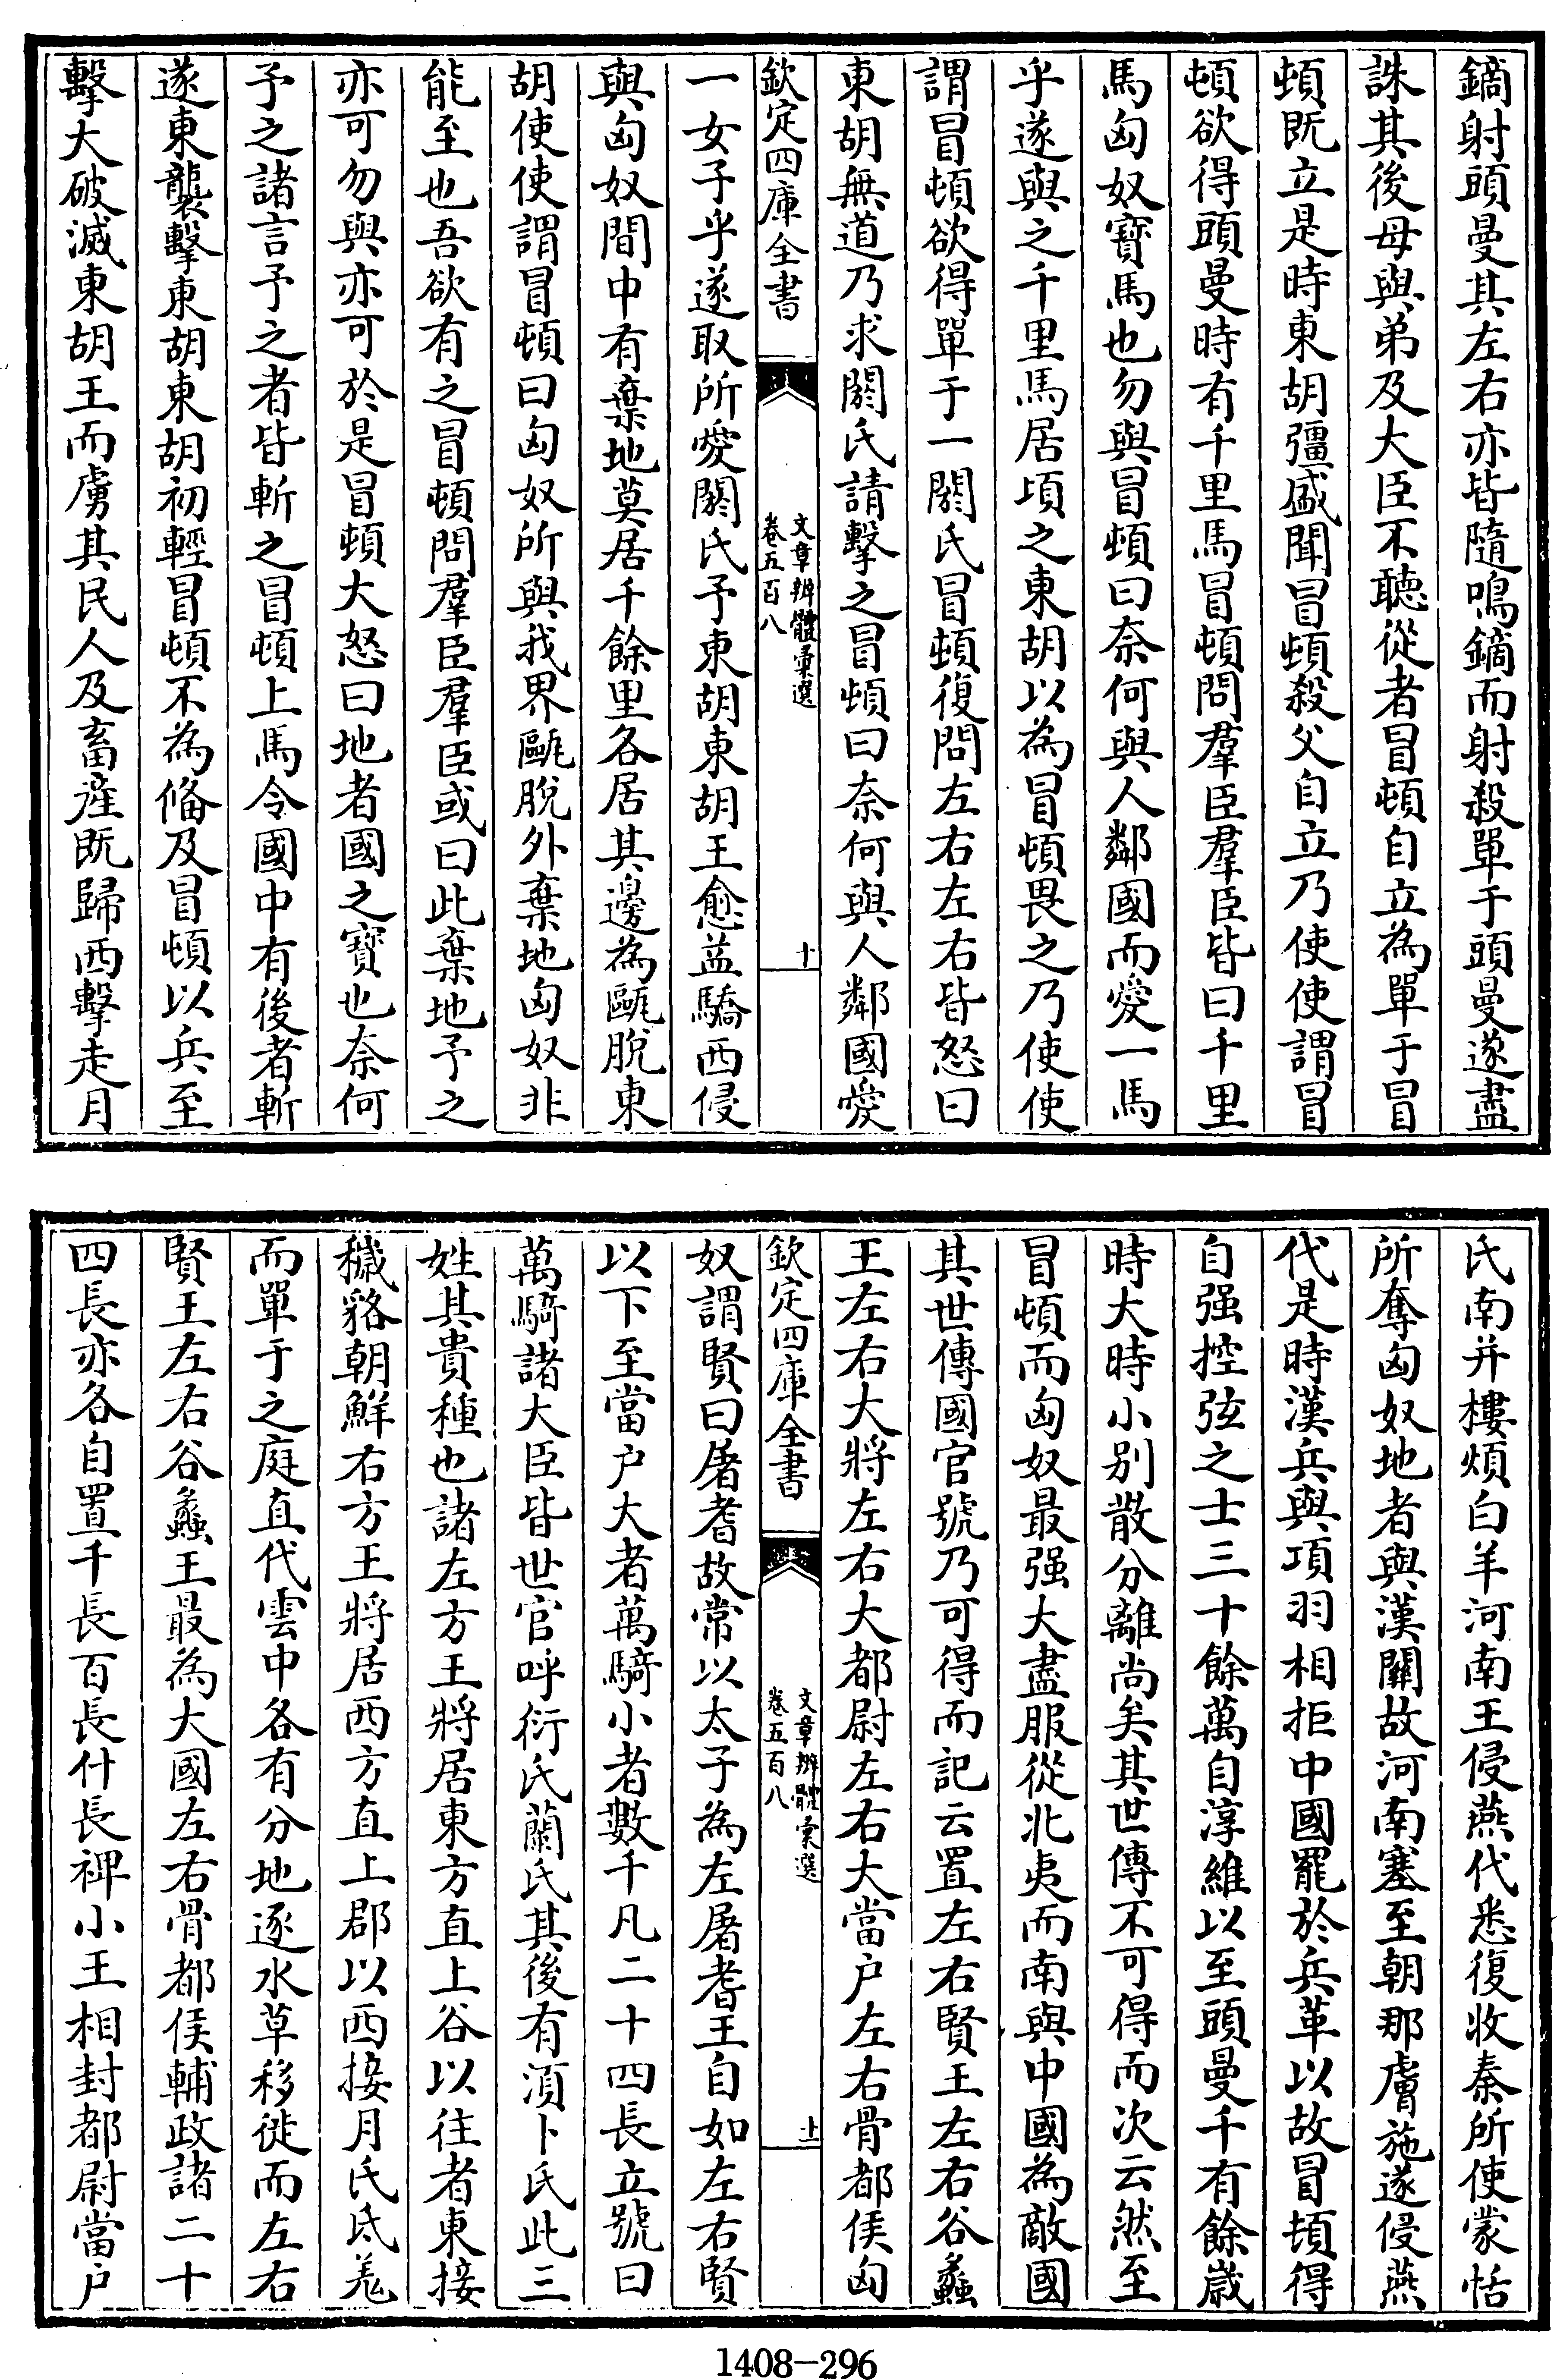 鏑射頭曼其左右亦皆隨鳴鏑而射殺單于頭曼遂盡
誅其後母與弟及大臣不聽從者冒頓自立為單于冒
頓既立是時東胡彊盛聞冒頓殺父自立乃使使謂冒
頓欲得頭曼時有千里馬冒頓問羣臣羣臣皆曰千里
馬匈奴寶馬也勿與冒頓曰奈何與人鄰國而愛一馬
乎遂與之千里馬居頃之東胡以為冒頓畏之乃使使
謂冒頓欲得單于一閼氏冒頓復問左右左右皆怒曰
東胡無道乃求閼氏請擊之冒頓曰奈何與人鄰國愛
欽定四庫全書
文章辨體彙選
卷五百八
十
一女子乎遂取所愛閼氏予東胡東胡王愈益驕西侵
與匈奴間中有棄地莫居千餘里各居其邊為甌脫東
胡使使謂冒頓曰匈奴所與我界甌脫外棄地匈奴非
能至也吾欲有之冒頓問羣臣羣臣或曰此棄地予之
亦可勿與亦可於是冒頓大怒曰地者國之寶也奈何
予之諸言予之者皆斬之冒頓上馬令國中有後者斬
遂東襲擊東胡東胡初輕冒頓不為俻及冒頓以兵至
擊大破滅東胡王而虜其民人及畜產既歸西擊走月
氏南并樓煩白羊河南王侵燕代悉復收秦所使蒙恬
所奪匈奴地者與漢關故河南塞至朝那膚施遂侵燕
代是時漢兵與項羽相拒中國罷於兵革以故冒頓得
自强控弦之士三十餘萬自淳維以至頭曼千有餘歲
時大時小别散分離尚矣其世傳不可得而次云然至
冒頓而匈奴最强大盡服從北夷而南與中國為敵國
其世傳國官號乃可得而記云置左右賢王左右谷蠡
王左右大將左右大都尉左右大當户左右骨都侯匈
欽定四庫全書
文章辨體彙選
卷五百八
十一
奴謂賢曰屠耆故常以太子為左屠耆王自如左右賢
以下至當户大者萬騎小者數千凡二十四長立號曰
萬騎諸大臣皆世官呼衍氏蘭氏其後有須卜氏此三
姓其貴種也諸左方王將居東方直上谷以往者東接
穢貉朝鮮右方王將居西方直上郡以西接月氏氐羌
而單于之庭直代雲中各有分地逐水草移徙而左右
賢王左右谷蠡王最為大國左右骨都侯輔政諸二十
四長亦各自置千長百長什長裨小王相封都尉當户
1408-296